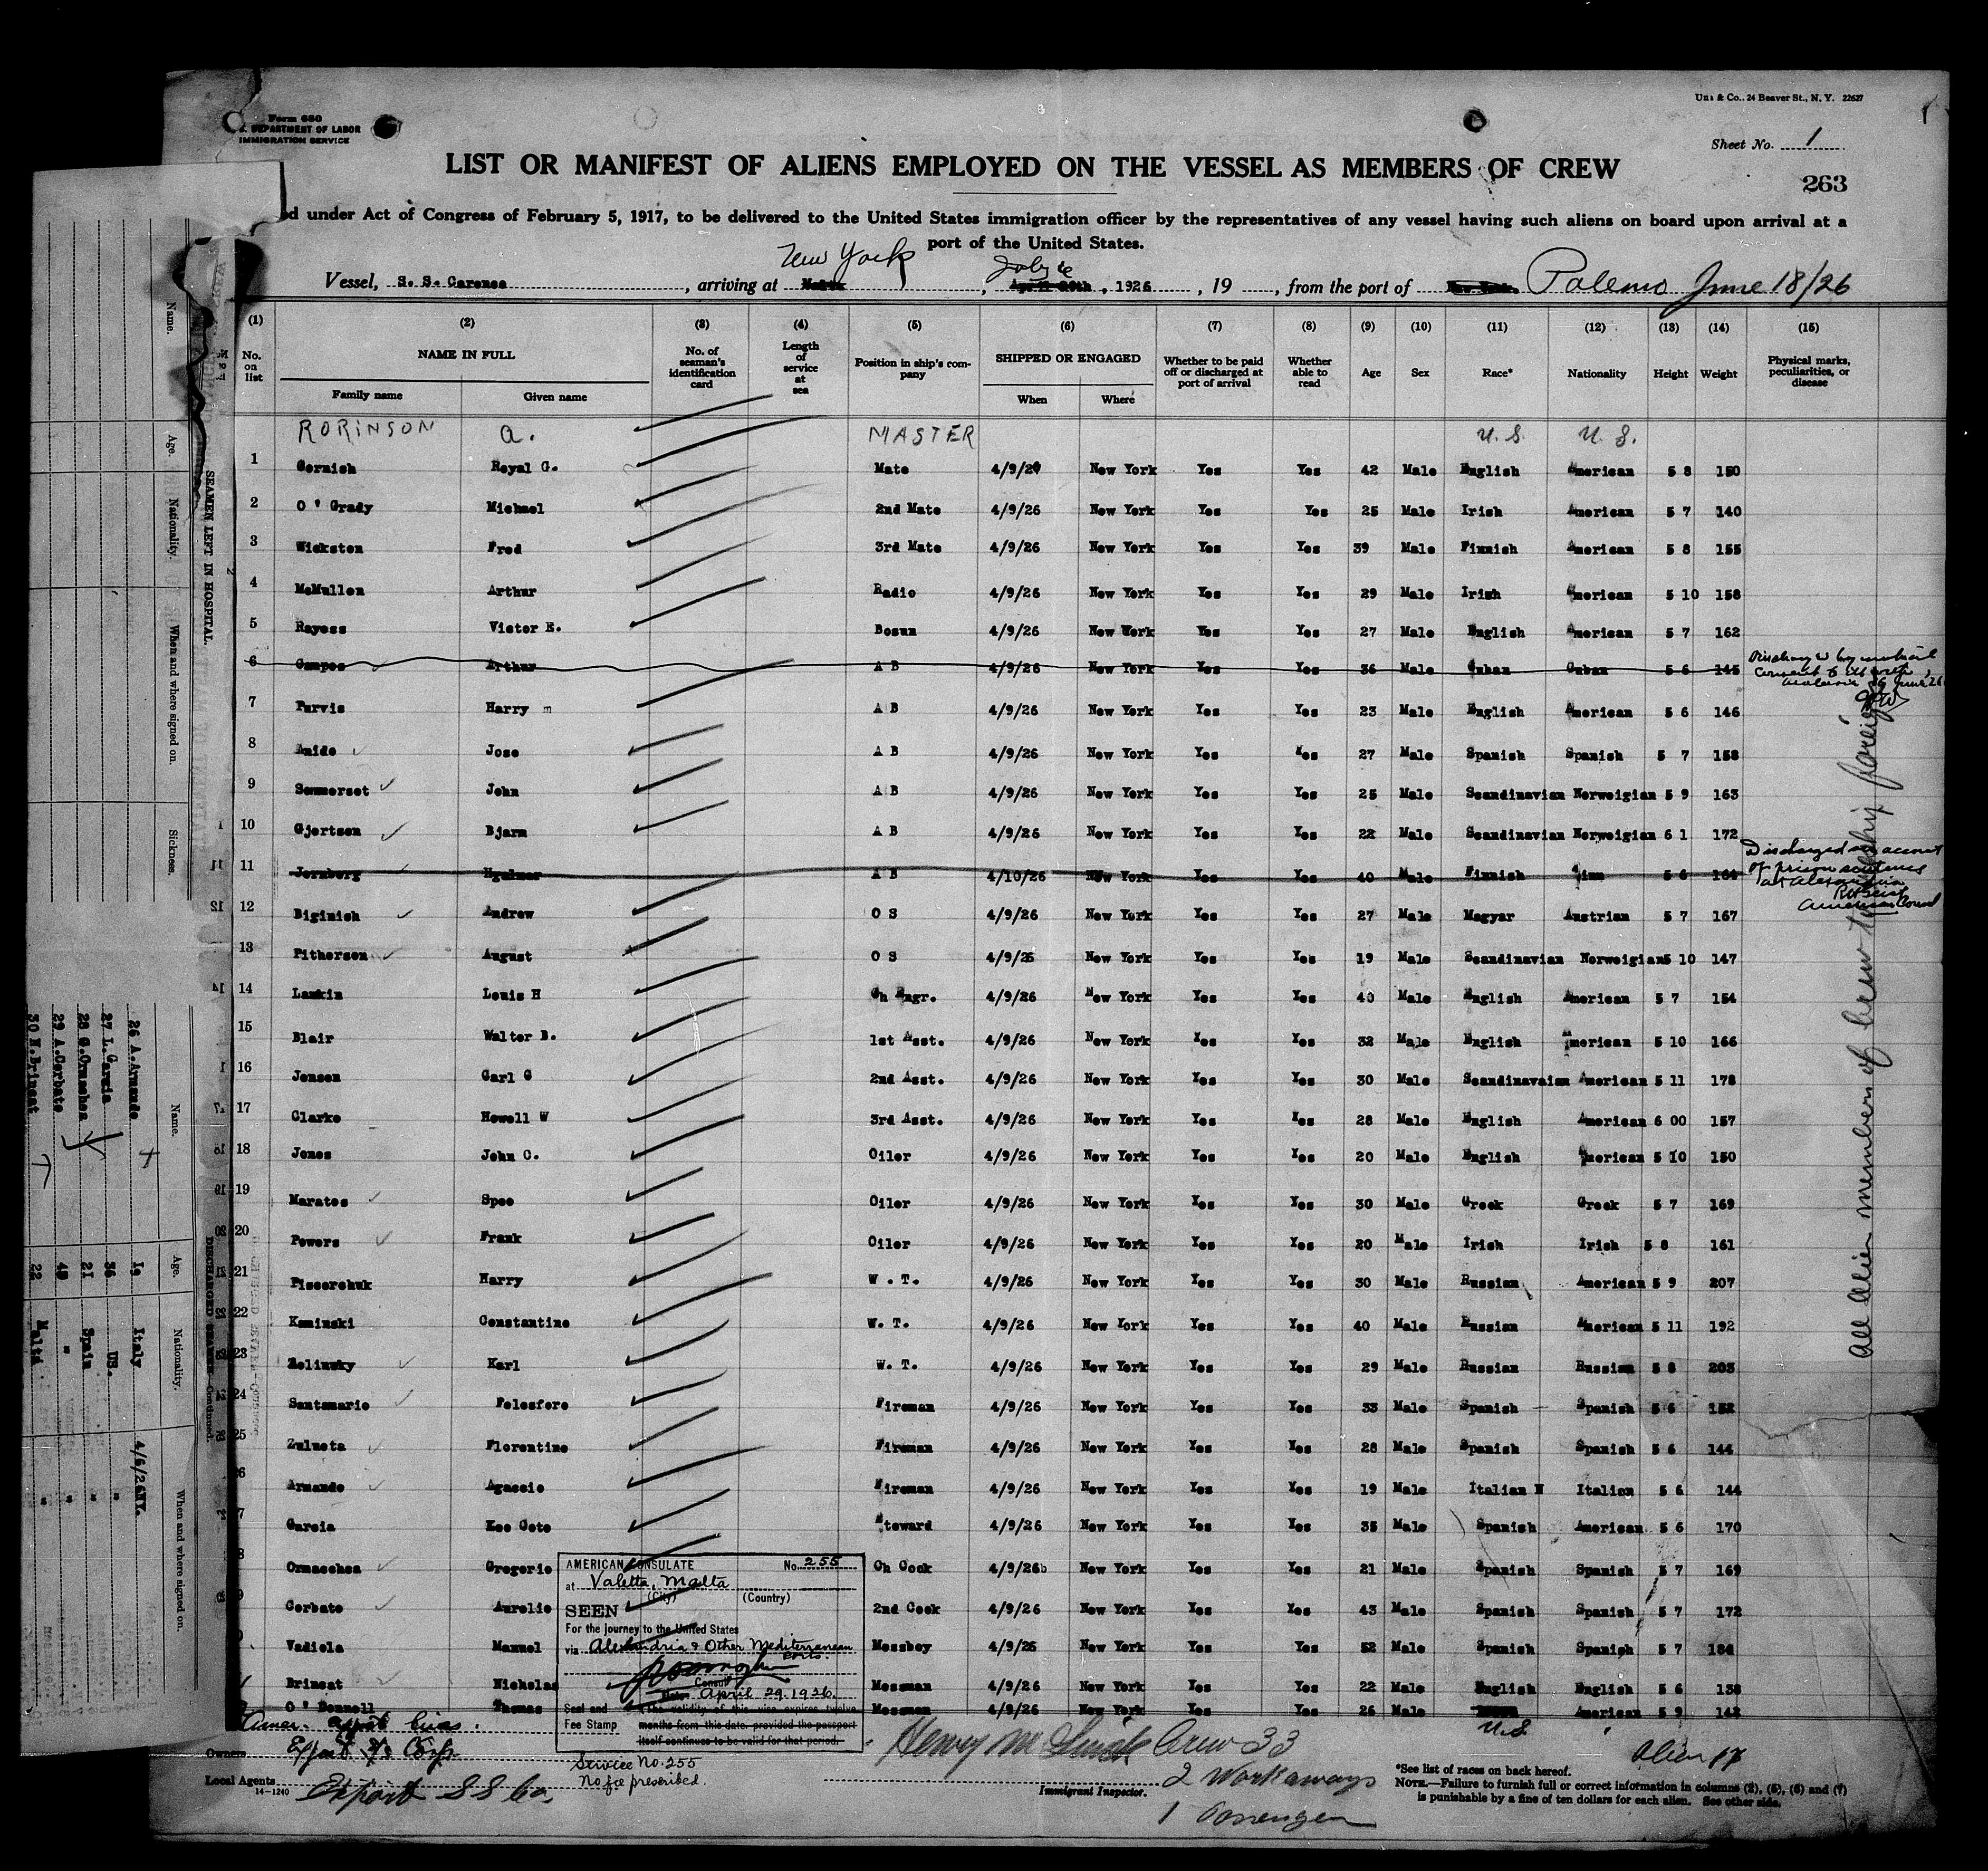 Form 680
DEPARTMENT OF LABOR
IMMIGRATION SERVICE
& Co., 24 Beaver St., N. Y. 22627
Sheet No. 1
LIST OR MANIFEST OF ALIENS EMPLOYED ON THE VESSEL AS MEMBERS OF CREW
263
ed under Act of Congress of February 5, 1917, to be delivered to the United States immigration officer by the representatives of any vessel having such aliens on board upon arrival at a
port of the United States.
New York July 6
Vessel, S. S. Carenco, arriving at Malta, April 29th, 1926, 19, from the port of New York. Palermo June 18/26
(1) (2) (3) (4) (5) (6) (7) (8) (9) (10) (11) (12) (13) (14) (15)
No. on list NAME IN FULL No. of seaman's identification card Length of service at sea Position in ship's company SHIPPED OR ENGAGED Whether to be paid off or discharged at port of arrival Whether able to read Age Sex Race* Nationality Height Weight Physical marks, peculiarities, or disease
Family name Given name When Where
RORINSON A. MASTER U. S. U. S.
1 Cornish Royal G. Mate 4/9/26 New York Yes Yes 42 Male English American 5 8 150
2 O'Grady Michael 2nd Mate 4/9/26 New York Yes Yes 25 Male Irish American 5 7 140
3 Wicksten Fred 3rd Mate 4/9/26 New York Yes Yes 39 Male Finnish American 5 8 155
4 McMullen Arthur Radio 4/9/26 New York Yes Yes 29 Male Irish American 5 10 158
5 Rayess Victor E. Bosun 4/9/26 New York Yes Yes 27 Male English American 5 7 162
6 Campos Arthur A B 4/9/26 New York Yes Yes 36 Male Cuban Cuban 5 6 145 Discharged by mutual consent
7 Purvis Harry m A B 4/9/26 New York Yes Yes 23 Male English American 5 6 146
8 Amido Jose A B 4/9/26 New York Yes Yes 27 Male Spanish Spanish 5 7 158
9 Sommerset John A B 4/9/26 New York Yes Yes 25 Male Scandinavian Norweigian 5 9 163
10 Gjertsen Bjarn A B 4/9/26 New York Yes Yes 22 Male Scandinavian Norweigian 6 1 172
11 Jernberg Hgalmar A B 4/10/26 New York Yes Yes 40 Male Finnish Finn 5 6 164 Discharged on account of prison sentence at Alexandria American Consul
12 Biginish Andrew O S 4/9/26 New York Yes Yes 27 Male Magyar Austrian 5 7 167
13 Pithersen August O S 4/9/26 New York Yes Yes 19 Male Scandinavian Norweigian 5 10 147
14 Lamkin Louis H Ch Engr. 4/9/26 New York Yes Yes 40 Male English American 5 7 154
15 Blair Walter B. 1st Asst. 4/9/26 New York Yes Yes 32 Male English American 5 10 166
16 Jensen Carl G 2nd Asst. 4/9/26 New York Yes Yes 30 Male Scandinavaian American 5 11 178
17 Clarke Howell W 3rd Asst. 4/9/26 New York Yes Yes 28 Male English American 6 00 157
18 Jones John C. Oiler 4/9/26 New York Yes Yes 20 Male English American 5 10 150
19 Maratos Spee Oiler 4/9/26 New York Yes Yes 30 Male Greek Greek 5 7 169
20 Powers Frank Oiler 4/9/26 New York Yes Yes 20 Male Irish Irish 5 8 161
21 Piscerchuk Harry W. T. 4/9/26 New York Yes Yes 30 Male Russian American 5 9 207
22 Kaminski Constantine W. T. 4/9/26 New York Yes Yes 40 Male Russian American 5 11 192
23 Zelinsky Karl W. T. 4/9/26 New York Yes Yes 29 Male Russian Russian 5 8 203
24 Santamarie Felesfore Fireman 4/9/26 New York Yes Yes 33 Male Spanish Spanish 5 6 152
25 Zulueta Florentino Fireman 4/9/26 New York Yes Yes 28 Male Spanish Spanish 5 6 144
26 Armando Agaccio Fireman 4/9/26 New York Yes Yes 19 Male Italian N Italian 5 6 144
7 Garcia Leo Coto Steward 4/9/26 New York Yes Yes 35 Male Spanish American 5 6 170
8 Ormaechea Gregorio Ch Cook 4/9/26 New York Yes Yes 21 Male Spanish Spanish 5 7 169
9 Corbato Aurelio 2nd Cook 4/9/26 New York Yes Yes 43 Male Spanish Spanish 5 7 172
Vadiola Manuel Messboy 4/9/26 New York Yes Yes 52 Male Spanish Spanish 5 7 184
Brincat Nicholas Messman 4/9/26 New York Yes Yes 22 Male English English 5 6 138
O'Donnell Thomas Messman 4/9/26 New York Yes Yes 26 Male U.S. 5 9 142
All alien members of crew to reship foreign
AMERICAN CONSULATE No. 255
at Valetta, Malta
(City) (Country)
SEEN
For the journey to the United States
via Alexandria & Other Mediterranean
Ports
Consul
Date April 29. 1926.
Seal and Fee Stamp
The validity of this visa expires twelve
months from this date, provided the passport
itself continues to be valid for that period.
Service No. 255
No fee prescribed.
Owners Export SS Corp.
Local Agents Export SS Co.
14-1240
Henry M Crew 33
Immigrant Inspector.
2 Workaways
1 Passenger
Alien 17
*See list of races on back hereof.
NOTE.—Failure to furnish full or correct information in columns (2), (5), (6) and (7)
is punishable by a fine of ten dollars for each alien. See other side.
SEAMEN LEFT IN HOSPITAL
Name. Age. Nationality. When and where signed on. Sickness.
DISCHARGED SEAMEN—Continued.
Name. Age. Nationality. When and where signed on.
26 A.Armando 19 Italy 4/6/26NY.
27 L.Garcia 36 US. "
28 G.Ormachea 21 Spain "
29 A.Corbato 43 " "
30 N.Brincat 22 Malta "